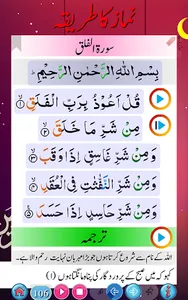 نماز کا طریقہ
سورۃ الفلق
بِسْمِ اللهِ الرَّحْمٰنِ الرَّحِيْمِ
قُلْ اَعُوْذُ بِرَبِّ الْفَلَقِ ۙ﴿۱﴾
مِنْ شَرِّ مَا خَلَقَ ۙ﴿۲﴾
وَمِنْ شَرِّ غَاسِقٍ اِذَا وَقَبَ ۙ﴿۳﴾
وَمِنْ شَرِّ النَّفّٰثٰتِ فِي الْعُقَدِ ۙ﴿۴﴾
وَمِنْ شَرِّ حَاسِدٍ اِذَا حَسَدَ ﴿۵﴾
ترجمہ
اللہ کے نام سے شروع کرتا ہوں جو بڑا مہربان نہایت رحم والا ہے۔
کہو کہ میں صبح کے پروردگار کی پناہ مانگتا ہوں (۱)
106